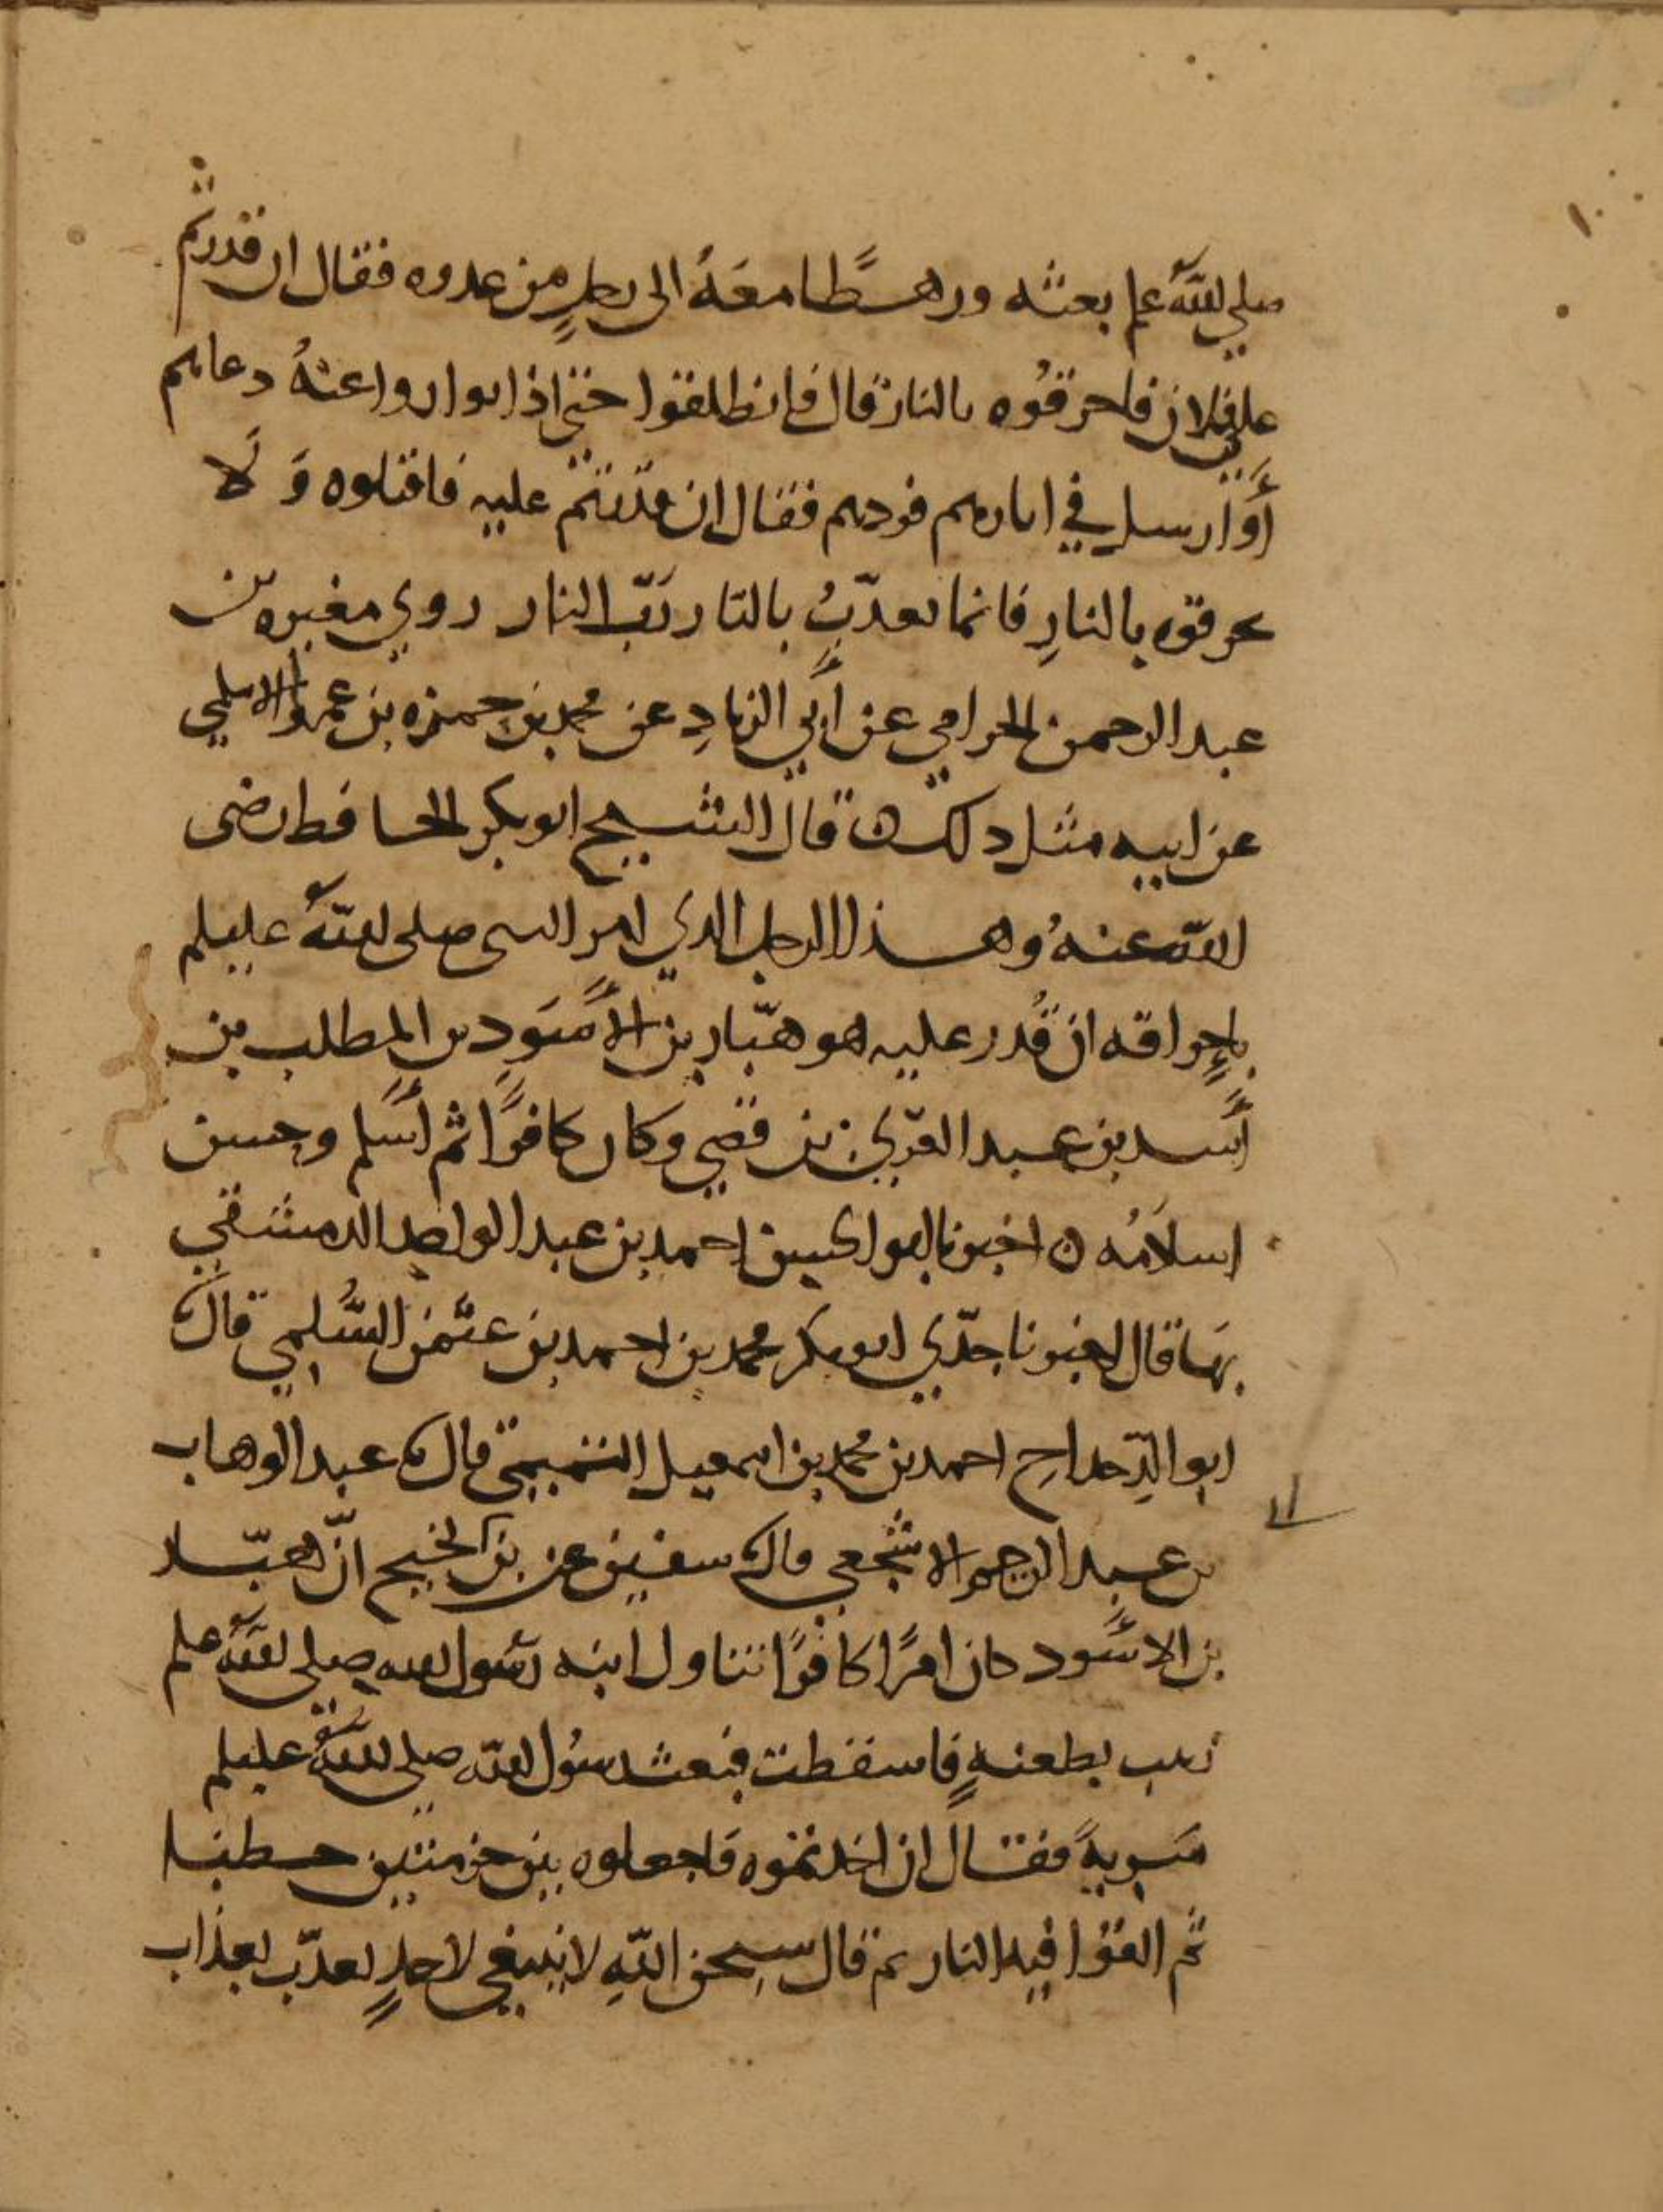 ١٠
صلى الله علم بعثه ورهطًا معهُ الى رجلٍ من عدوه فقال ان قدرتم
على فلان فاحرقُوه بالنار قال فانطلقوا حتى اذا تواروا عنهُ دعاهم
أَوْ أرسل في اثارهم فردهم فقال ان قدرتم عليه فاقتلوه وَ لَا
تحرقوه بالنارِ فانما يعذّبُ بالنار رَبّ النار روى مغيره بن
عبد الرحمن الحزامي عن أبي الزنادِ عن محمد بن حمزه بن عمرو الاسلمي
عن ابيه مثل ذلك ه قال الشيخ ابو بكر الحافظ رضى
الله عنهُ وهذا الرجل الذي امر النبي صلى اللهُ عليلم
بإحراقه ان قُدر عليه هو هبّار بن الأَسَودِ بن المطلب بن
أَسد بن عبد العزّى بن قصي وكان كافرًا ثم أَسلم وحسن
اسلامُه ه اخبرنا ابو الحسين احمد بن عبد الواحد الدمشقي
بهَا قال اخبرنا جدّي ابو بكر محمد بن احمد بن عثمن السُّلمي قال
ابو الدِّحداحِ احمد بن محمد بن اسمعيل التميمي قال عبد الوهاب
بن عبد الرحيم الاشجعي قال سفين عن بن ابى نجيح انّ هبّار
بن الاسَود كان امرًا كافرًا تناول ابنه رسُول الله صلى اللهُ علم
زينب بطعنهٍ فاسقطت فبعث رسُول الله صلى اللهُ عليلم
سَريهً فقال ان اخذتموه فاجعلوه بين حزمتين حطبا
ثم القوا فيه النار ثم قال سبحن اللهِ لا ينبغي لاحدٍ يعذّب بعذاب